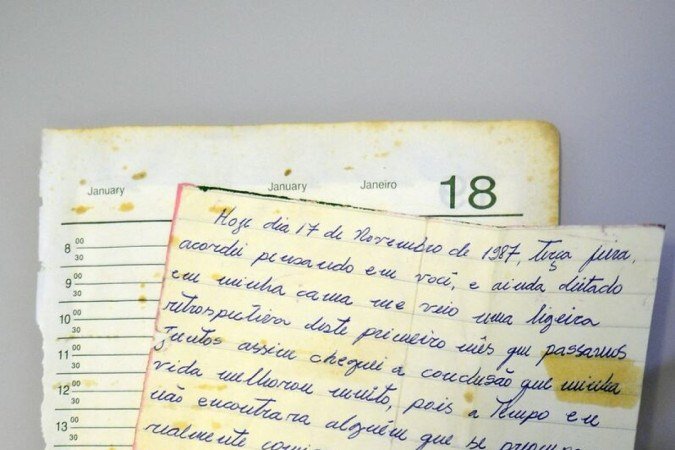 January January Janeiro 18
8 00
30
9 00
30
10 00
30
11 00
30
12 00
30
13 00
30
Hoje dia 17 de Novembro de 1987, terça feira,
acordei pensando em você, e ainda deitado
em minha cama me veio uma ligeira
retrospectiva deste primeiro mês que passamos
juntos assim cheguei a conclusão que minha
vida melhorou muito, pois a tempo eu
não encontrara alguém que se
realmente